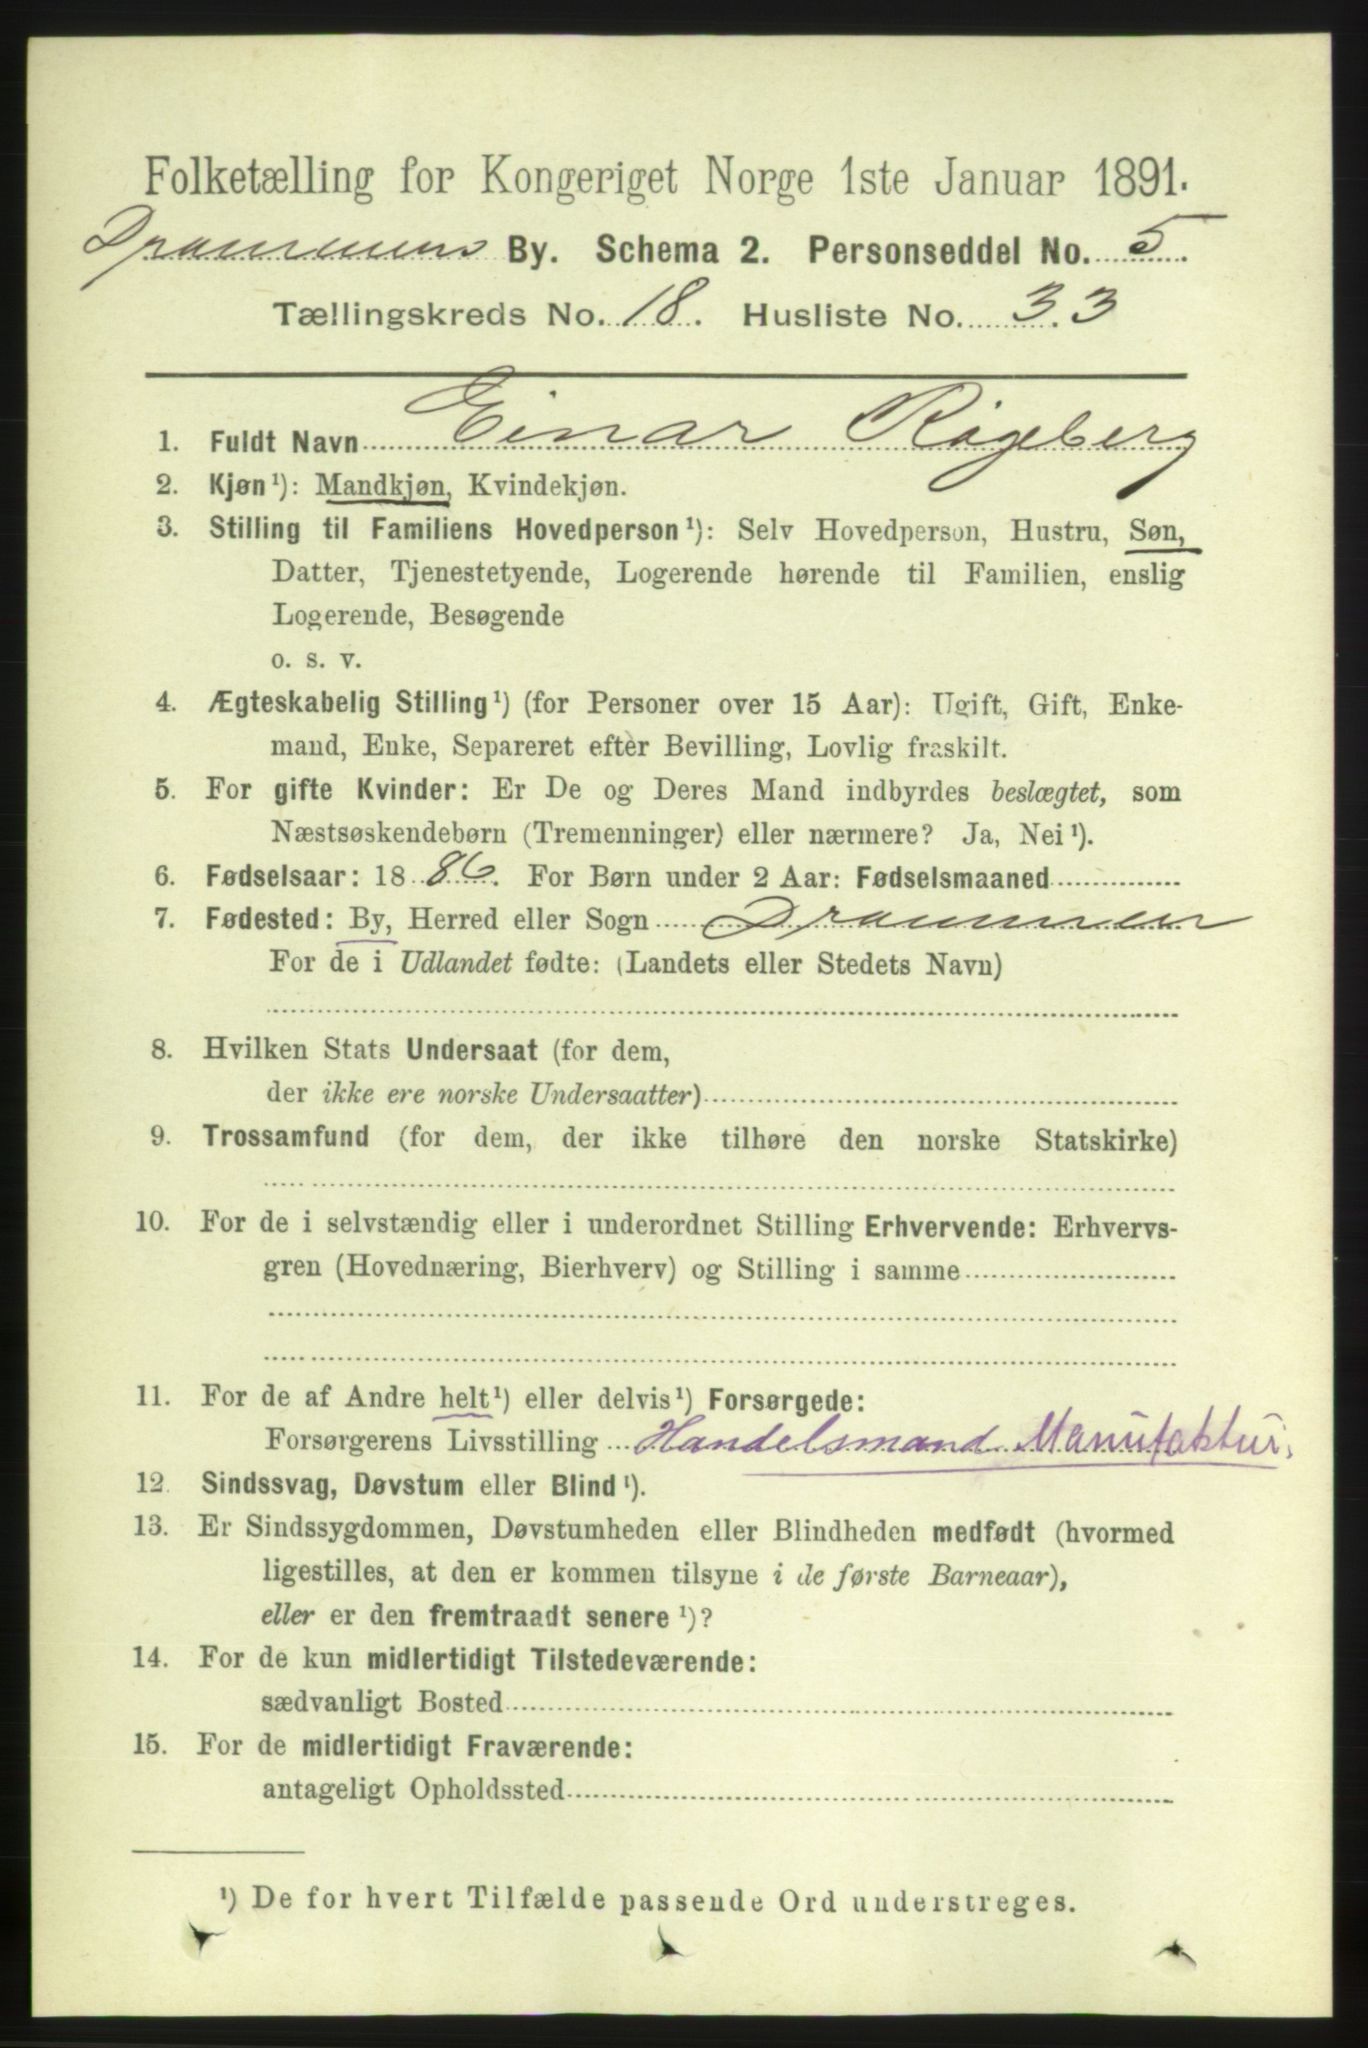 Folketælling for Kongeriget Norge 1ste Januar 1891.
Drammens By. Schema 2. Personseddel No. 5.
Tællingskreds No. 18. Husliste No. 33
1. Fuldt Navn Einar Rögeberg
2. Kjøn¹): Mandkjøn, Kvindekjøn.
3. Stilling til Familiens Hovedperson¹): Selv Hovedperson, Hustru, Søn,
Datter, Tjenestetyende, Logerende hørende til Familien, enslig
Logerende, Besøgende
o. s. v.
4. Ægteskabelig Stilling¹) (for Personer over 15 Aar): Ugift, Gift, Enke-
mand, Enke, Separeret efter Bevilling, Lovlig fraskilt.
5. For gifte Kvinder: Er De og Deres Mand indbyrdes beslægtet, som
Næstsøskendebørn (Tremenninger) eller nærmere? Ja, Nei¹).
6. Fødselsaar: 1886. For Børn under 2 Aar: Fødselsmaaned
7. Fødested: By, Herred eller Sogn Drammen
For de i Udlandet fødte: (Landets eller Stedets Navn)
8. Hvilken Stats Undersaat (for dem,
der ikke ere norske Undersaatter)
9. Trossamfund (for dem, der ikke tilhøre den norske Statskirke)
10. For de i selvstændig eller i underordnet Stilling Erhvervende: Erhvervs-
gren (Hovednæring, Bierhverv) og Stilling i samme
11. For de af Andre helt¹) eller delvis¹) Forsørgede:
Forsørgerens Livsstilling Handelsmand Manufaktur.
12. Sindssvag, Døvstum eller Blind¹).
13. Er Sindssygdommen, Døvstumheden eller Blindheden medfødt (hvormed
ligestilles, at den er kommen tilsyne i de første Barneaar),
eller er den fremtraadt senere¹)?
14. For de kun midlertidigt Tilstedeværende:
sædvanligt Bosted
15. For de midlertidigt Fraværende:
antageligt Opholdssted
¹) De for hvert Tilfælde passende Ord understreges.